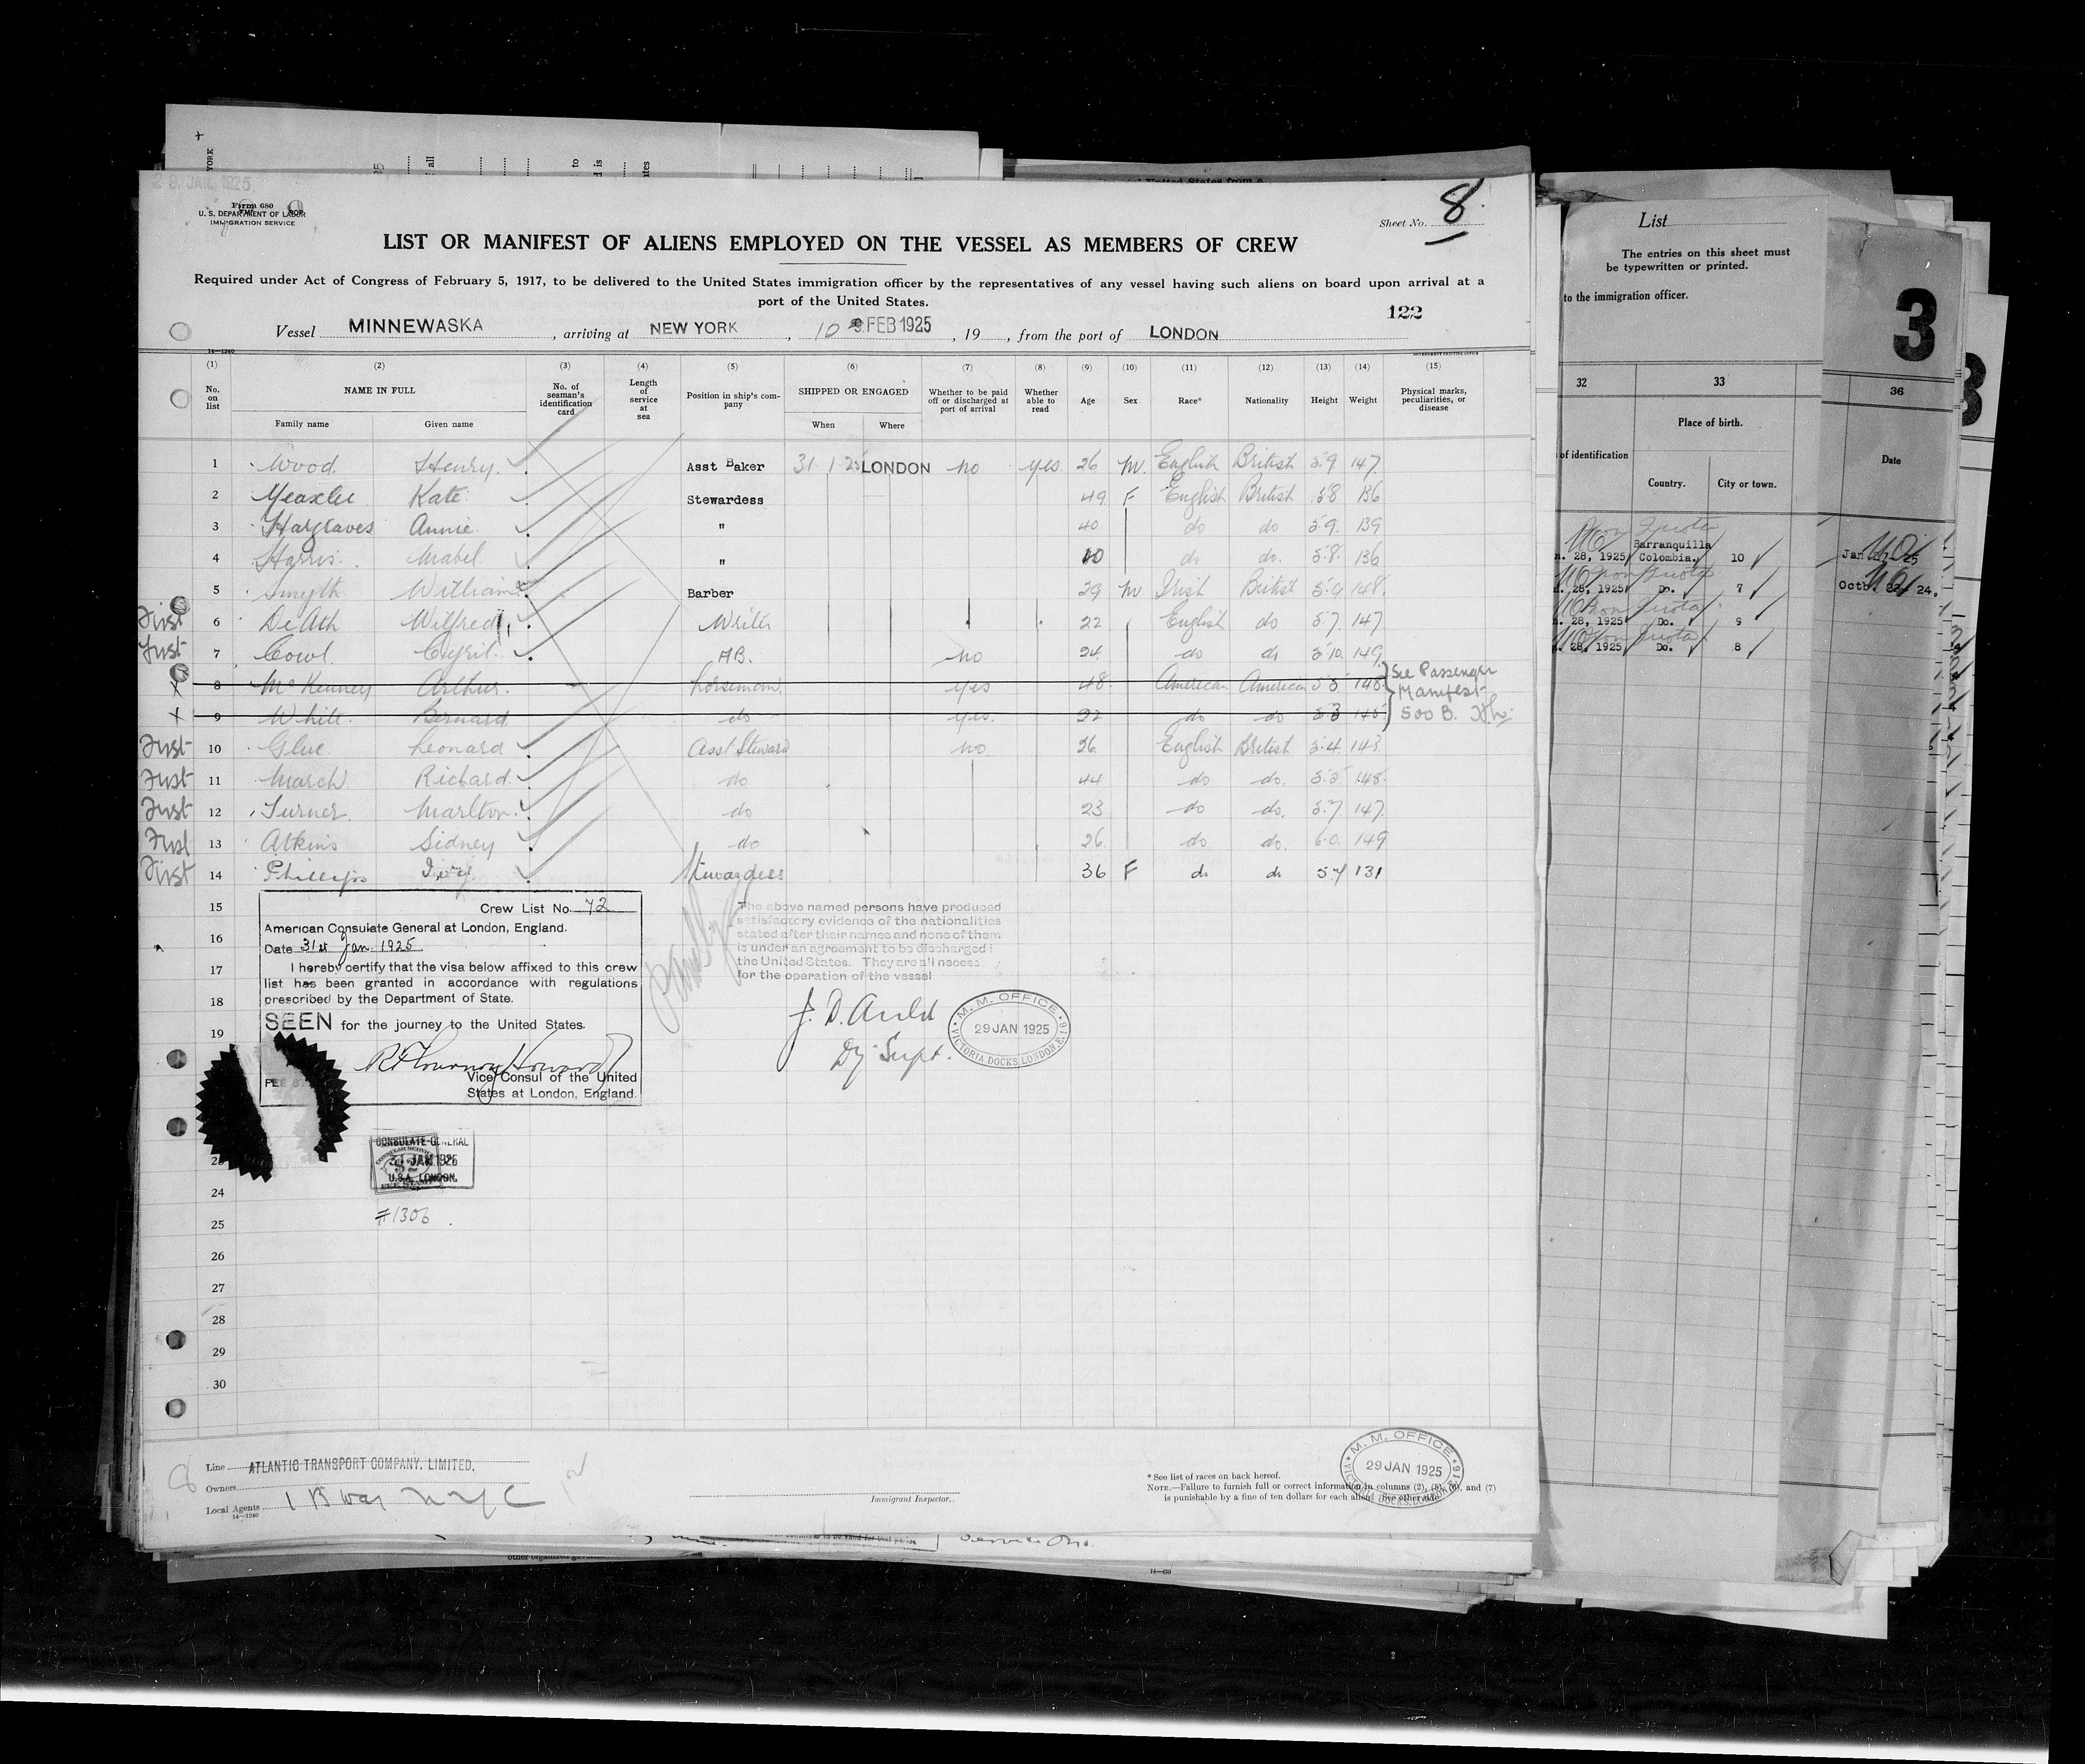 28 JAN. 1925
Form 680
U. S. DEPARTMENT OF LABOR
IMMIGRATION SERVICE
Sheet No. 8
LIST OR MANIFEST OF ALIENS EMPLOYED ON THE VESSEL AS MEMBERS OF CREW
Required under Act of Congress of February 5, 1917, to be delivered to the United States immigration officer by the representatives of any vessel having such aliens on board upon arrival at a
port of the United States.
122
Vessel MINNEWASKA, arriving at NEW YORK, 10 FEB 1925, 19, from the port of LONDON
14—1240
(1) (2) (3) (4) (5) (6) (7) (8) (9) (10) (11) (12) (13) (14) (15)
No. on list NAME IN FULL No. of seaman's identification card Length of service at sea Position in ship's company SHIPPED OR ENGAGED Whether to be paid off or discharged at port of arrival Whether able to read Age Sex Race* Nationality Height Weight Physical marks, peculiarities, or disease
Family name Given name When Where
1 Wood Henry Asst Baker 31 1 25 LONDON no yes 26 M. English British 5.9 147
2 Kate Stewardess 49 F English British 5.8 136
3 Hargraves Annie " 40 do do 5.9 139
4 Harris Mabel " 40 do do 5.8 136
5 Smyth William Barber 29 M Irish British 5.9 148
First 6 De Ath Wilfred Writer 22 English do 5.7 147
First 7 Cowl Cyril AB. no 24 do do 5.10 149
+ 8 McKenney Arthur horseman yes 48 American American 5.5 148 See Passenger
Manifest
+ 9 White Bernard do yes 22 do do 5.3 145 500 B.
First 10 Glue Leonard Asst Steward no 26 English British 5.4 143
First 11 March Richard do 44 do do 5.5 148
First 12 Turner Marlton do 23 do do 5.7 147
First 13 Atkins Sidney do 26 do do 6.0 149
First 14 Phillips Ivy Stewardess 36 F do do 5.4 131
15
16
17
18
19
24
25
26
27
28
29
30
Crew List No. 72
American Consulate General at London, England.
Date 31st Jan. 1925
I hereby certify that the visa below affixed to this crew
list has been granted in accordance with regulations
prescribed by the Department of State.
SEEN for the journey to the United States.
Vice Consul of the United
States at London, England.
CONSULATE-GENERAL
31 JAN 1925
U.S.A. LONDON.
#1306
The above named persons have produced
satisfactory evidence of the nationalities
stated after their names and none of them
is under an agreement to be discharged i
the United States. They are all necess y
for the operation of the vessel
J. D. Auld
Dy Supt.
M. M. OFFICE
29 JAN 1925
VICTORIA DOCKS, LONDON, E.16
Line ATLANTIC TRANSPORT COMPANY, LIMITED.
Owners
Local Agents 1 B'way N Y C
14—1240
Immigrant Inspector.
* See list of races on back hereof.
NOTE.—Failure to furnish full or correct information in columns (2), (5), (6), and (7)
is punishable by a fine of ten dollars for each alien.
M. M. OFFICE
29 JAN 1925
VICTORIA DOCKS, LONDON, E.16
List
The entries on this sheet must
be typewritten or printed.
to the immigration officer.
3
32 33 36
Place of birth.
of identification Date
Country. City or town.
Non Quota
Barranquilla
n. 28, 1925 Colombia. 10
28, 1925 Do. 7 24.
n. 28, 1925 Do. 9
28, 1925 Do. 8